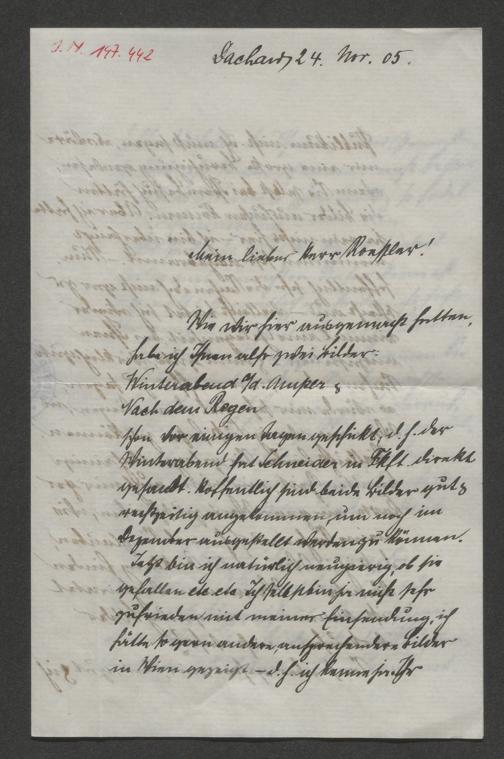 J.N. 147.442
Dachau, 24. Nov. 05.
Mein lieber Herr Roessler!
Wie wir hier ausgemacht hatten,
habe ich Ihnen also zwei Bilder:
Winterabend a/d. Amper &
Nach dem Regen
schon vor einigen Tagen geschickt, d. h. der
Winterabend hat Schneider in Fkft. direkt
gesandt. Hoffentlich sind beide Bilder gut &
rechtzeitig angekommen, um noch im
Dezember ausgestellt werden zu können.
Jetzt bin ich natürlich neugierig, ob sie
gefallen etc. etc. Ich selbst bin ja nicht sehr
zufrieden mit meiner Einsendung, ich
hätte so gern andere, ansprechendere Bilder
in Wien gezeigt – d. h. ich kenne ja Ihr